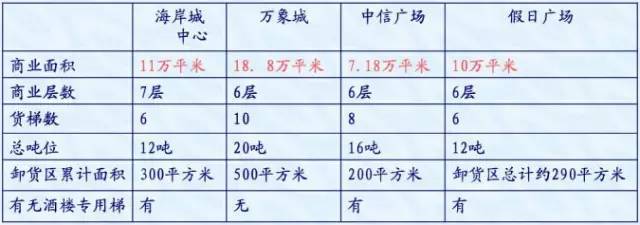 海岸城中心 万象城 中信广场 假日广场
商业面积 11万平米 18. 8万平米 7.18万平米 10万平米
商业层数 7层 6层 6层 6层
货梯数 6 10 8 6
总吨位 12吨 20吨 16吨 12吨
卸货区累计面积 300平方米 500平方米 200平方米 卸货区总计约290平方米
有无酒楼专用梯 有 无 有 有